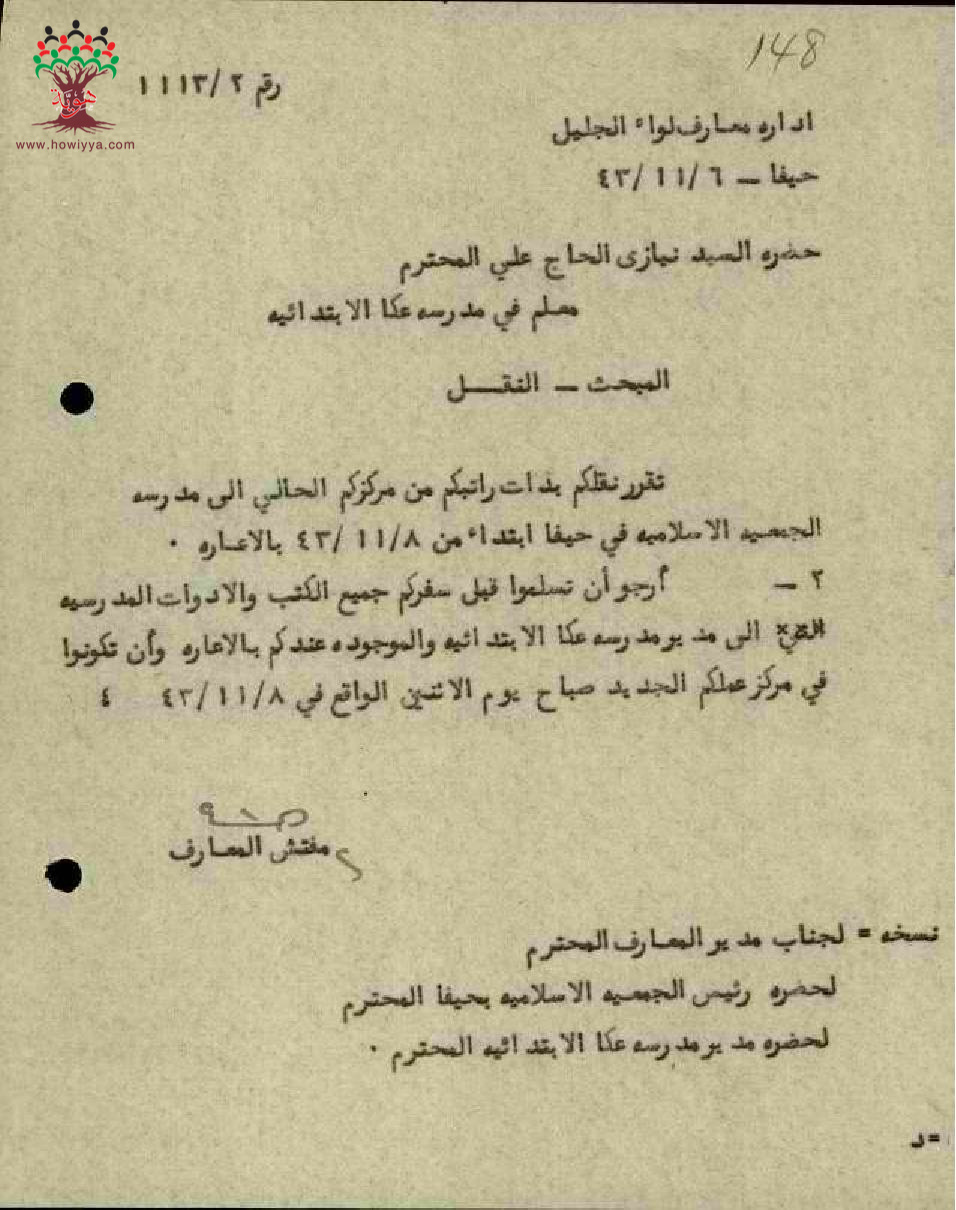 148
رقم ٢/ ١١١٣
اداره معارف لواء الجليل
حيفا – ٦ /١١ /٤٣
حضره السيد نيازى الحاج علي المحترم
معلم في مدرسه عكا الابتدائيه
المبحث – النقـــل
تقرر نقلكم بذات راتبكم من مركزكم الحالي الى مدرسه
الجمعيه الاسلاميه في حيفا ابتداء من ٨/١١/ ٤٣ بالاعاره .
٢ – أرجو أن تسلموا قبل سفركم جميع الكتب والادوات المدرسيه
الى مدير مدرسه عكا الابتدائيه والموجوده عندكم بالاعاره وأن تكونوا
في مركز عملكم الجديد صباح يوم الاثنين الواقع في ٨/١١/٤٣ ٤
مفتش المعارف
نسخه = لجناب مدير المعارف المحترم
لحضره رئيس الجمعيه الاسلاميه بحيفا المحترم
لحضره مدير مدرسه عكا الابتدائيه المحترم .
=د
هوية
www.howiyya.com